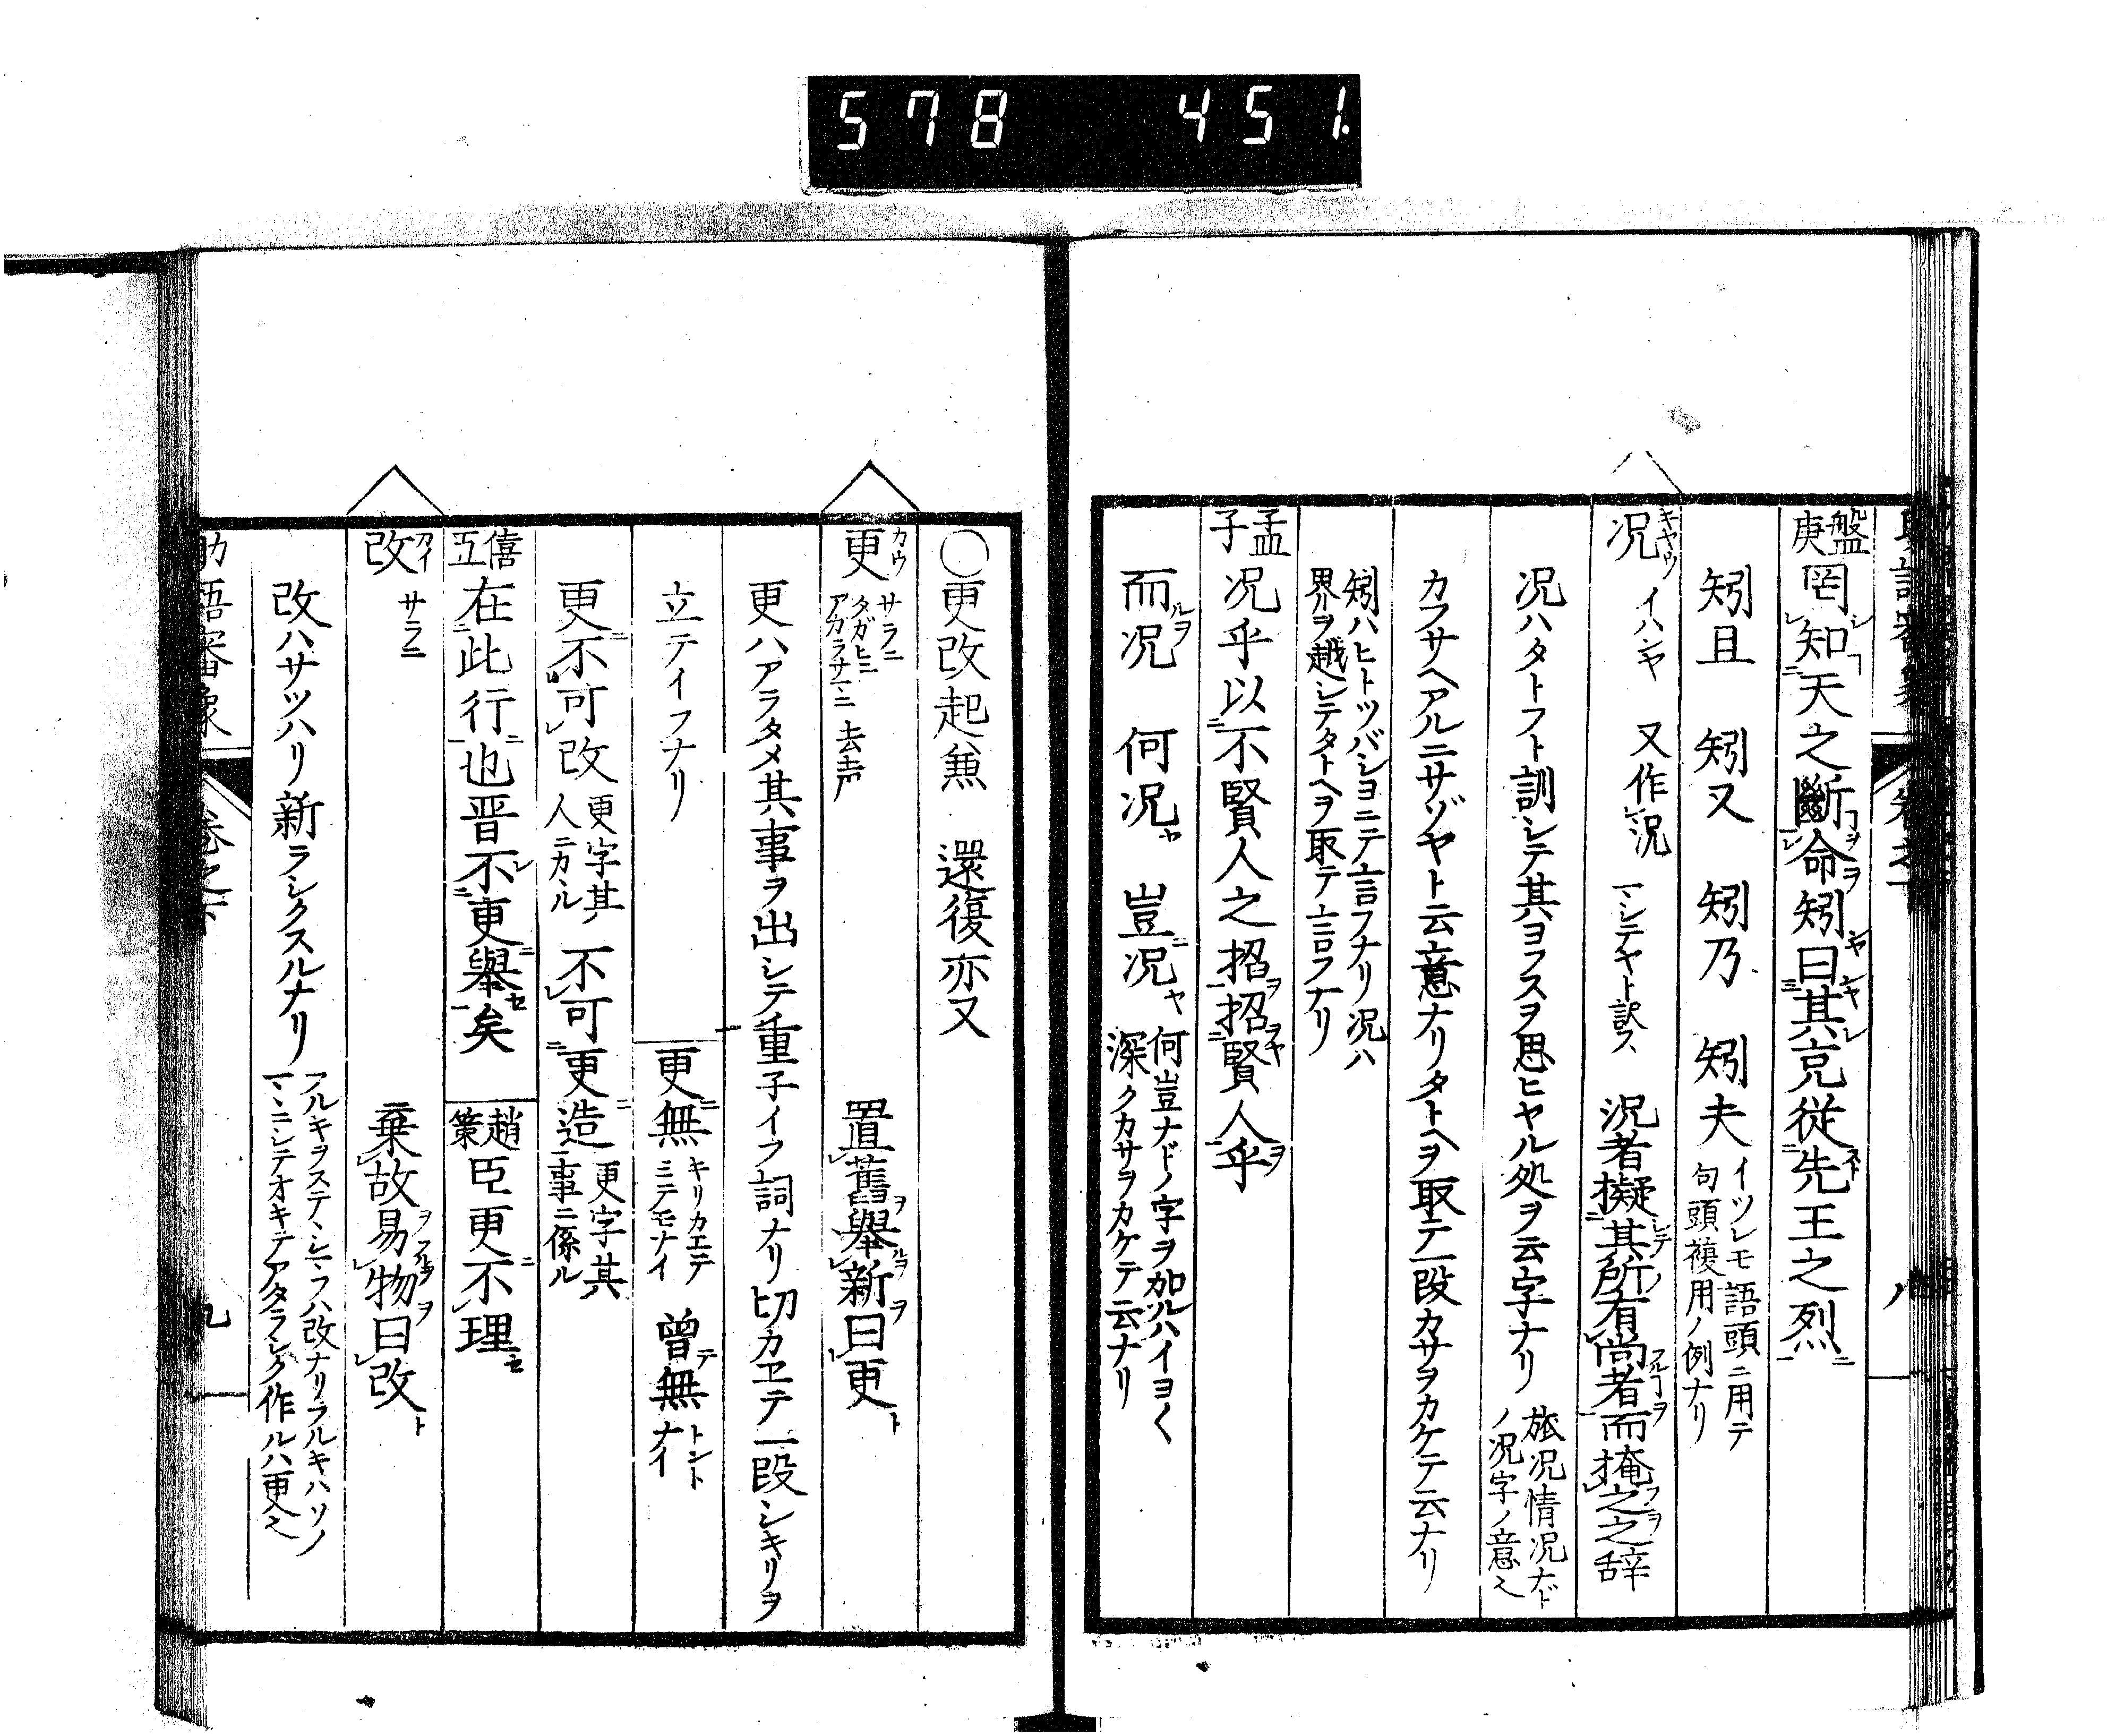 578 451.
盤庚 罔知天之斷命矧曰其克從先王之烈
矧且 矧又 矧乃 矧夫 イツレモ語頭ニ用テ句頭複用ノ例ナリ
況 キヤウ イハンヤ 又作况 マシテヤト訳ス 況者擬其所有尚者而掩之之辞
況ハタトフト訓シテ其ヨフスヲ思ヒヤル処ヲ云字ナリ 旅況情況ナドノ況字ノ意也
カフサヘアルニサゾヤト云意ナリタトヘヲ取テ一段カサヲカケテ云ナリ
矧ハヒトツバシヨニテ言フナリ況ハ
界ヲ越シテタトヘヲ取テ言フナリ
孟子 况乎以不賢人之招招賢人乎
而況 何況 豈況 何豈ナドノ字ヲ加ルハイヨく深クカサヲカケテ云ナリ
〇更改起兼 還復亦又
更 カウ サラニ タガヒニ アカラサマニ 去声 置舊舉新曰更
更ハアラタメ其事ヲ出シテ重子イフ詞ナリ切カヱテ一段シキリヲ
立テイフナリ 更無 キリカエテミテモナイ 曾無 トントナイ
更不可改 更字其人ニカヽル 不可更造 更字其事ニ係ル
僖五 在此行也晋不更舉矣 趙策 臣更不理
改 カイ サラニ 棄故易物曰改
改ハサツハリ新ラシクスルナリ フルキヲステヽシマフハ改ナリフルキハソノマヽニシテオキテアタラシク作ルハ更也
助語審象 卷之下 九